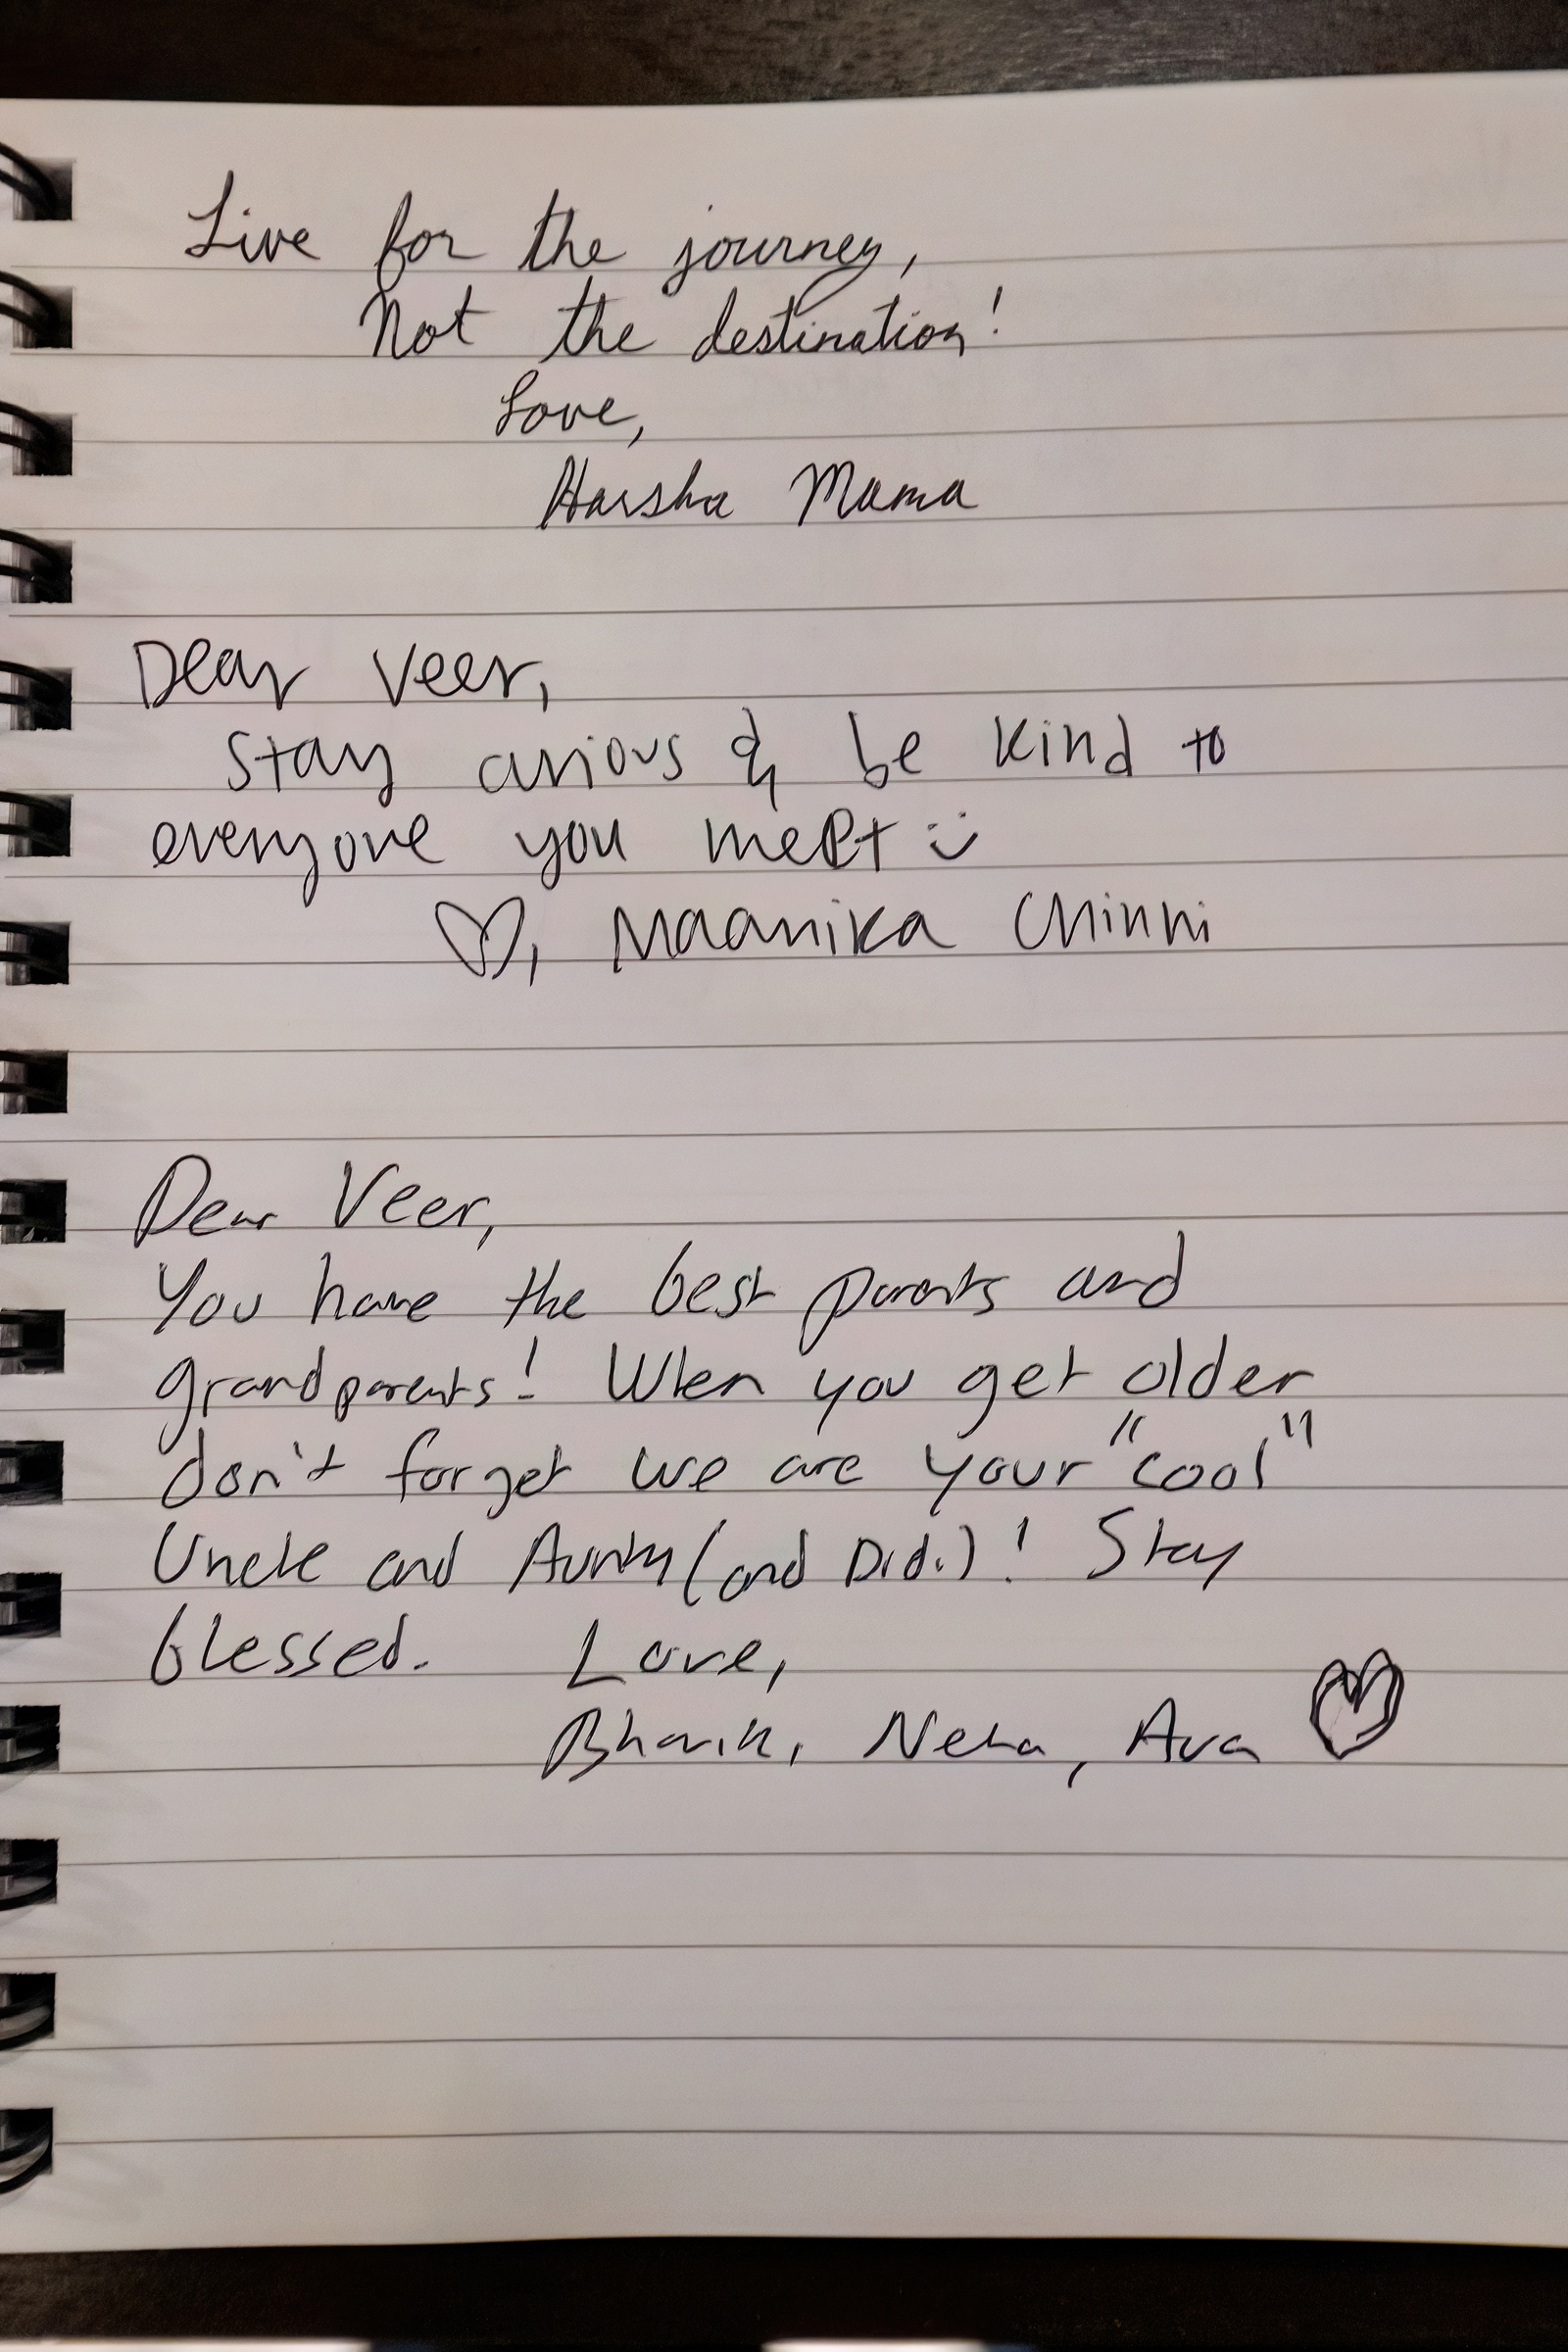 Live for the journey,
Not the destination!
Love,
Harsha Mama
Dear Veer,
Stay curious & be kind to
everyone you meet :)
♡, Maanika Chinni
Dear Veer,
You have the best parents and
grandparents! When you get older
don't forget we are your "cool"
Uncle and Aunty (and Didi)! Stay
blessed. Love,
Bhavik, Neha, Ava ♡